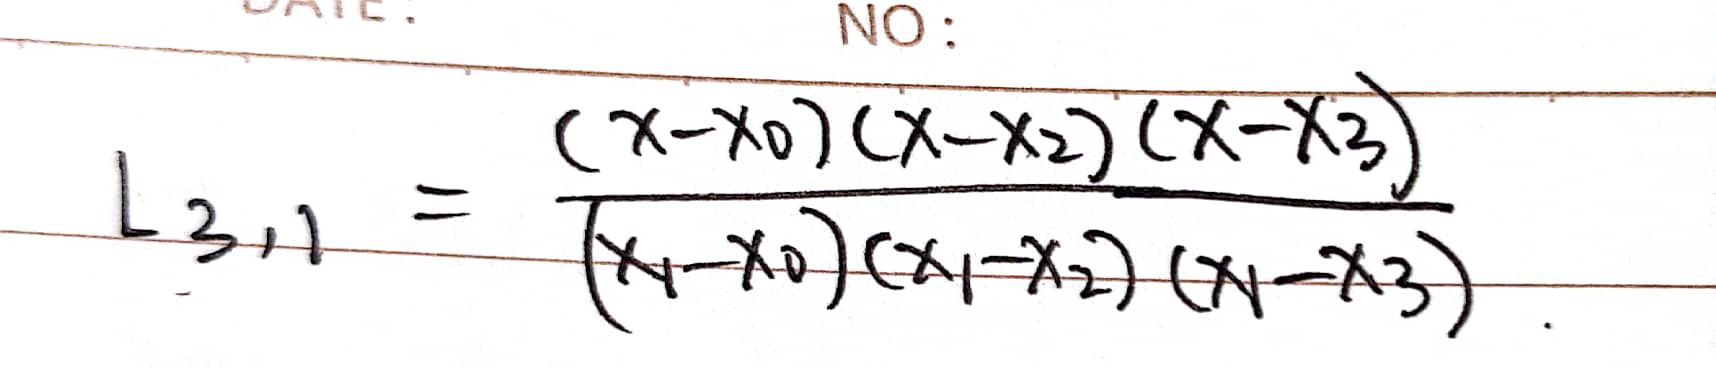 DATE:
NO:
L_{3,1} = \frac{(x-x_0)(x-x_2)(x-x_3)}{(x_1-x_0)(x_1-x_2)(x_1-x_3)}.